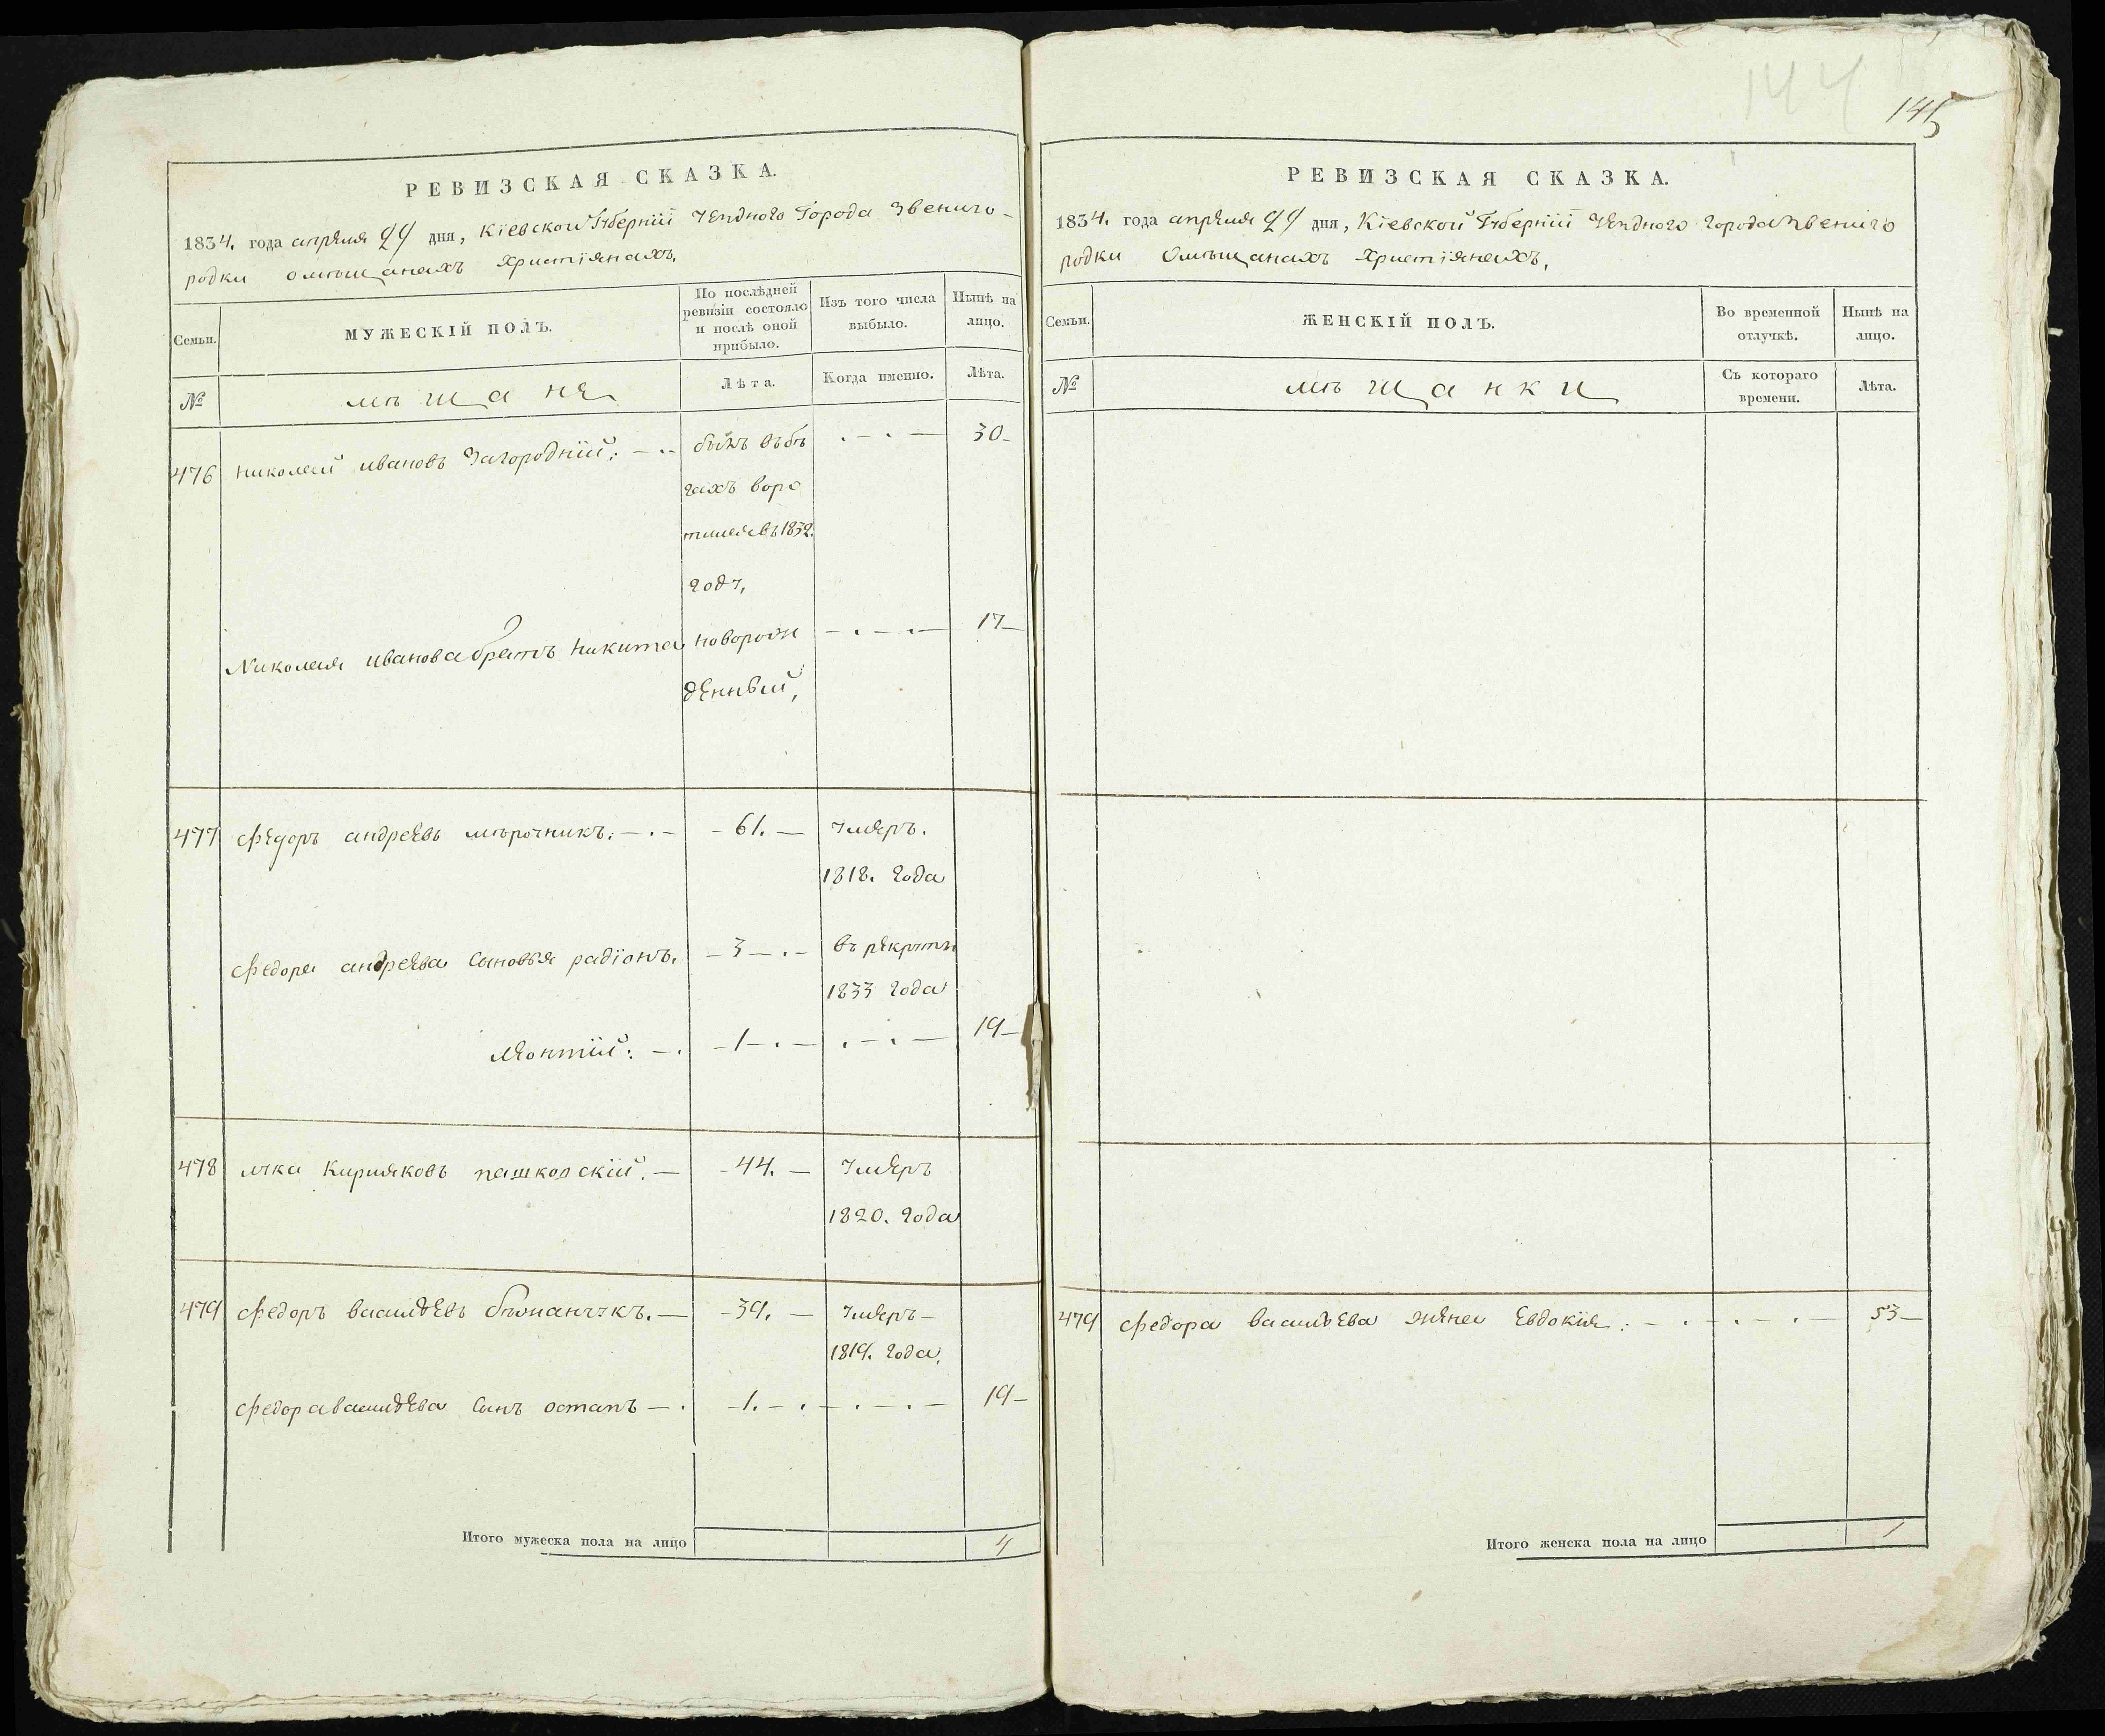 144
145
РЕВИЗСКАЯ СКАЗКА.
1834. года апреля 29 дня, Кіевской Губерніи Уезднаго Города Звениго-
родки омѣщанахъ христіянахъ,
Семьи.
МУЖЕСКІЙ ПОЛЪ.
По послѣдней ревизіи состояло и послѣ оной прибыло.
Изъ того числа выбыло.
Нынѣ на лицо.
№
мѣщане
Лѣта.
Когда именно.
Лѣта.
476 николай ивановъ Загородній: былъ въбѣ 30
гахъ воро
тился въ 1832.
году,
Николая иванова братъ никита новорож 17
денный,
477 федоръ андреевъ мѣрочникъ. 61. умеръ.
1818. года
федора андреева сыновья радіонъ. 3 въ рекруты
1833 года
леонтій: 1 19
478 лука кириаковъ пашковскій. 44. умеръ
1820. года
479 федоръ васильевъ 39. умеръ
1819. года,
федора васильева сынъ остапъ 1. 19
Итого мужеска пола на лицо 4
РЕВИЗСКАЯ СКАЗКА.
1834. года апреля 29 дня, Кіевской Губерніи Уезднаго города Звениго
родки омѣщанахъ христіянахъ,
Семьи.
ЖЕНСКІЙ ПОЛЪ.
Во временной отлучкѣ.
Нынѣ на лицо.
№
мѣщанки
Съ котораго времени.
Лѣта.
479 федора васильева жена Евдокія: 53
Итого женска пола на лицо 1